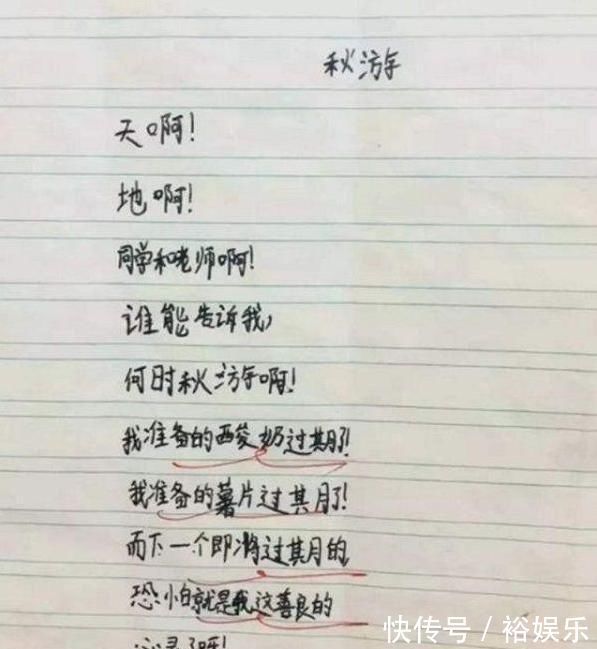 秋游
天啊!
地啊!
同学和老师啊!
谁能告诉我,
何时秋游啊!
我准备的酸奶过期了!
我准备的薯片过期了!
而下一个即将过期的
恐怕就是我这善良的
快传号 / 裕娱乐